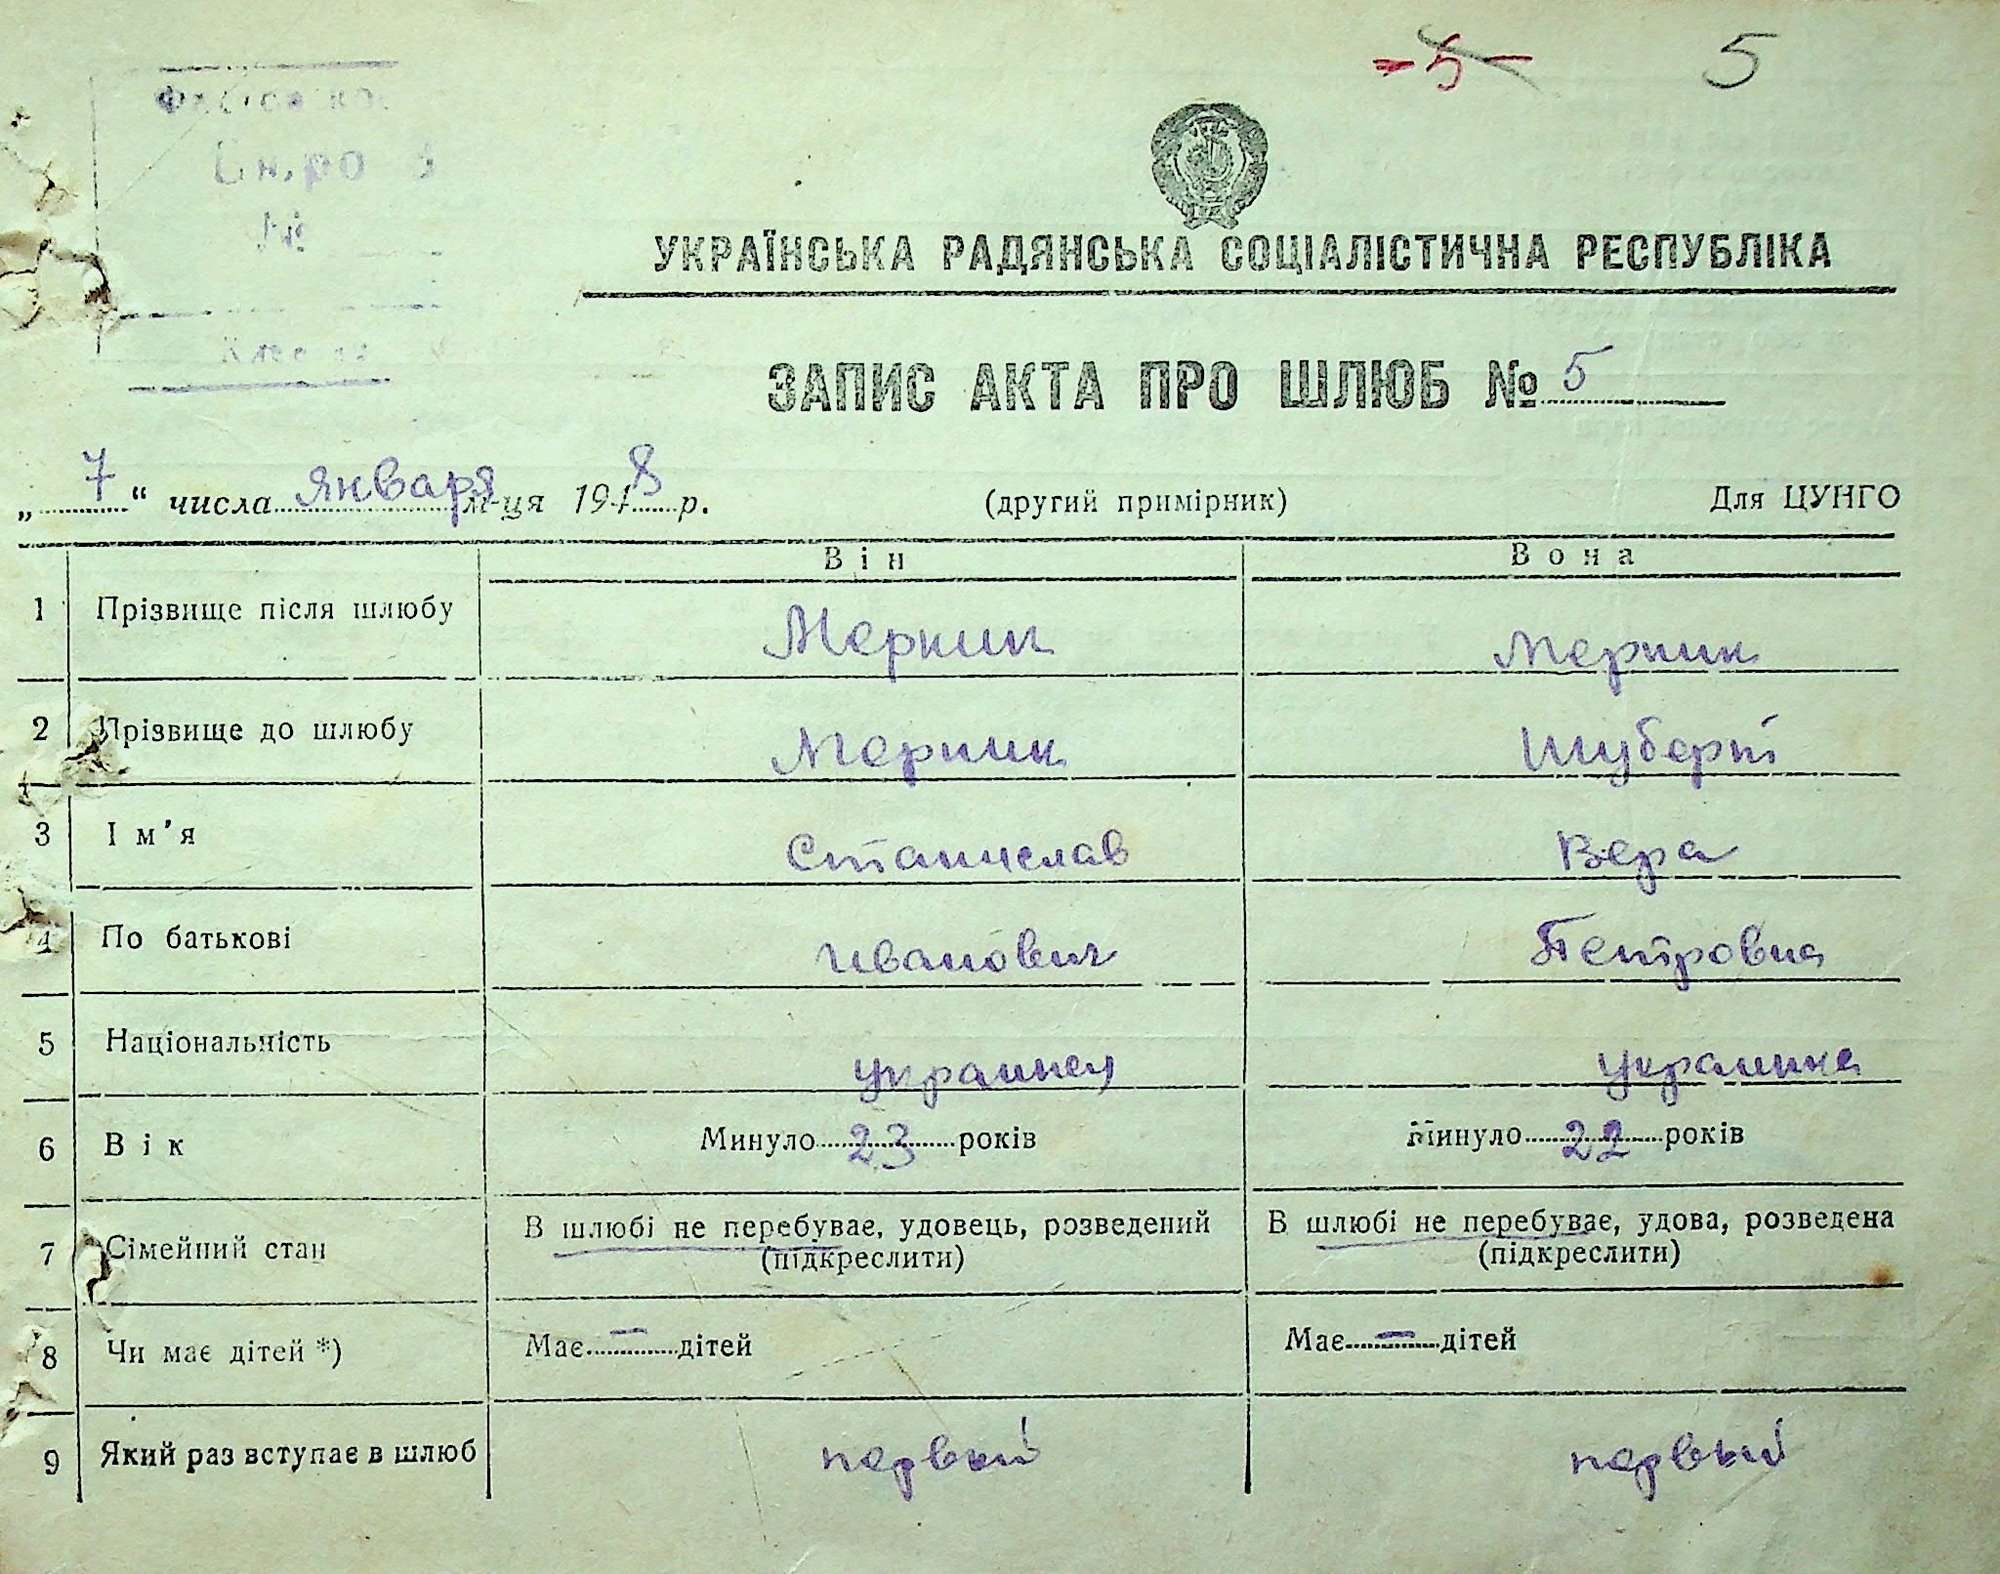 -5- 5
УКРАЇНСЬКА РАДЯНСЬКА СОЦІАЛІСТИЧНА РЕСПУБЛІКА
ЗАПИС АКТА ПРО ШЛЮБ № 5
„ 7 “ числа января м-ця 1948 р. (другий примірник) Для ЦУНГО
Він Вона
1 Прізвище після шлюбу Мерник Мерник
2 Прізвище до шлюбу Мерник Шуберт
3 Ім'я Станислав Вера
4 По батькові Иванович Петровна
5 Національність украинец украинка
6 Вік Минуло 23 років Минуло 22 років
7 Сімейний стан В шлюбі не перебуває, удовець, розведений В шлюбі не перебуває, удова, розведена
(підкреслити) (підкреслити)
8 Чи має дітей *) Має — дітей Має — дітей
9 Який раз вступає в шлюб первый первый